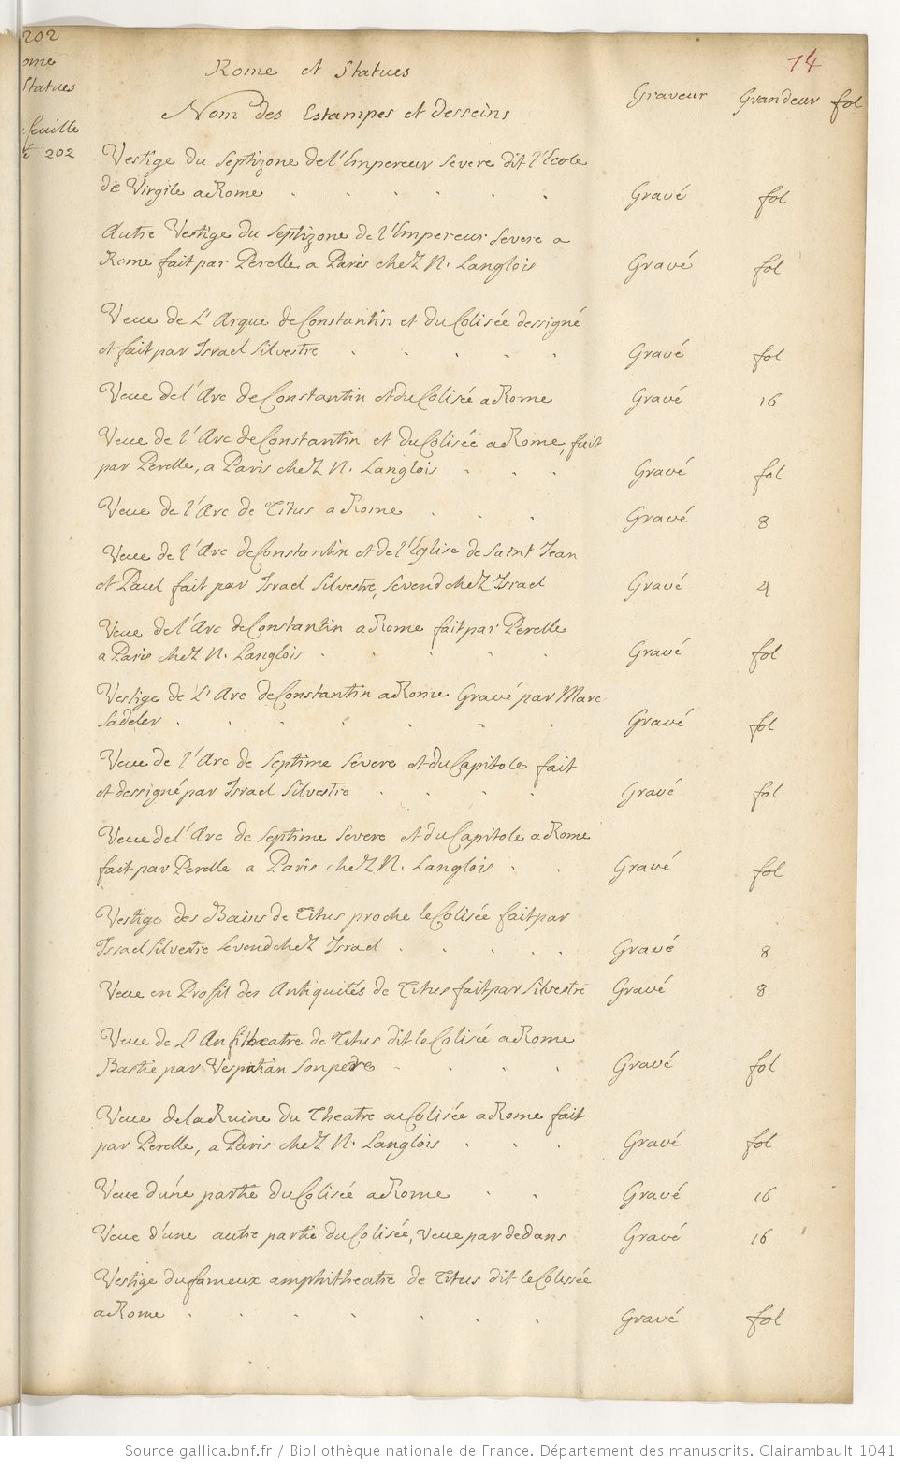 202
ome
Statues
feuille
202
74
Rome et Statues
Nom des Estampes et desseins
Graveur Grandeur fol
Vestige du Septizone de l'Empereur Severe dit l'Ecole
de Virgile a Rome . . . . . Gravé fol
Autre Vestige du Septizone de l'Empereur Severe a
Rome fait par Perelle a Paris chez N. Langlois Gravé fol
Veue de L'Arque de Constantin et du Colisée dessigné
et fait par Israel Silvestre . . . . . Gravé fol
Veue de l'Arc de Constantin et du Colisée a Rome Gravé 16
Veue de l'Arc de Constantin et du Colisée a Rome, fait
par Perelle, a Paris chez N. Langlois . . . Gravé fol
Veue de l'Arc de Titus a Rome . . . Gravé 8
Veue de l'Arc de Constantin et de l'Eglise de Saint Jean
et Paul fait par Israel Silvestre, se vend chez Israel Gravé 4
Veue de l'Arc de Constantin a Rome fait par Perelle
a Paris chez N. Langlois . . . . . Gravé fol
Vestige de L'Arc de Constantin a Rome. Gravé par Marc
Sadeler . . . . . . . Gravé fol
Veue de l'Arc de Septime Severe et du Capitole fait
et dessigné par Israel Silvestre . . . . Gravé fol
Veue de l'Arc de Septime Severe et du Capitole a Rome
fait par Perelle a Paris chez N. Langlois . . Gravé fol
Vestige des Bains de Titus proche le Colisée fait par
Israel Silvestre se vend chez Israel . . . . Gravé 8
Veue en Profil des Antiquités de Titus fait par Silvestre Gravé 8
Veue de L'Anfitheatre de Titus dit le Colisée a Rome
Bastie par Vespatian son pere . . . . Gravé fol
Veue de la Ruine du Theatre au Colisée a Rome fait
par Perelle, a Paris chez N. Langlois . . . Gravé fol
Veue d'une partie du Colisée a Rome . . Gravé 16
Veue d'une autre partie du Colisée, veue par dedans Gravé 16
Vestige du fameux amphitheatre de Titus dit le Colisée
a Rome . . . . . . Gravé fol
Source gallica.bnf.fr / Bibliothèque nationale de France. Département des manuscrits. Clairambault 1041